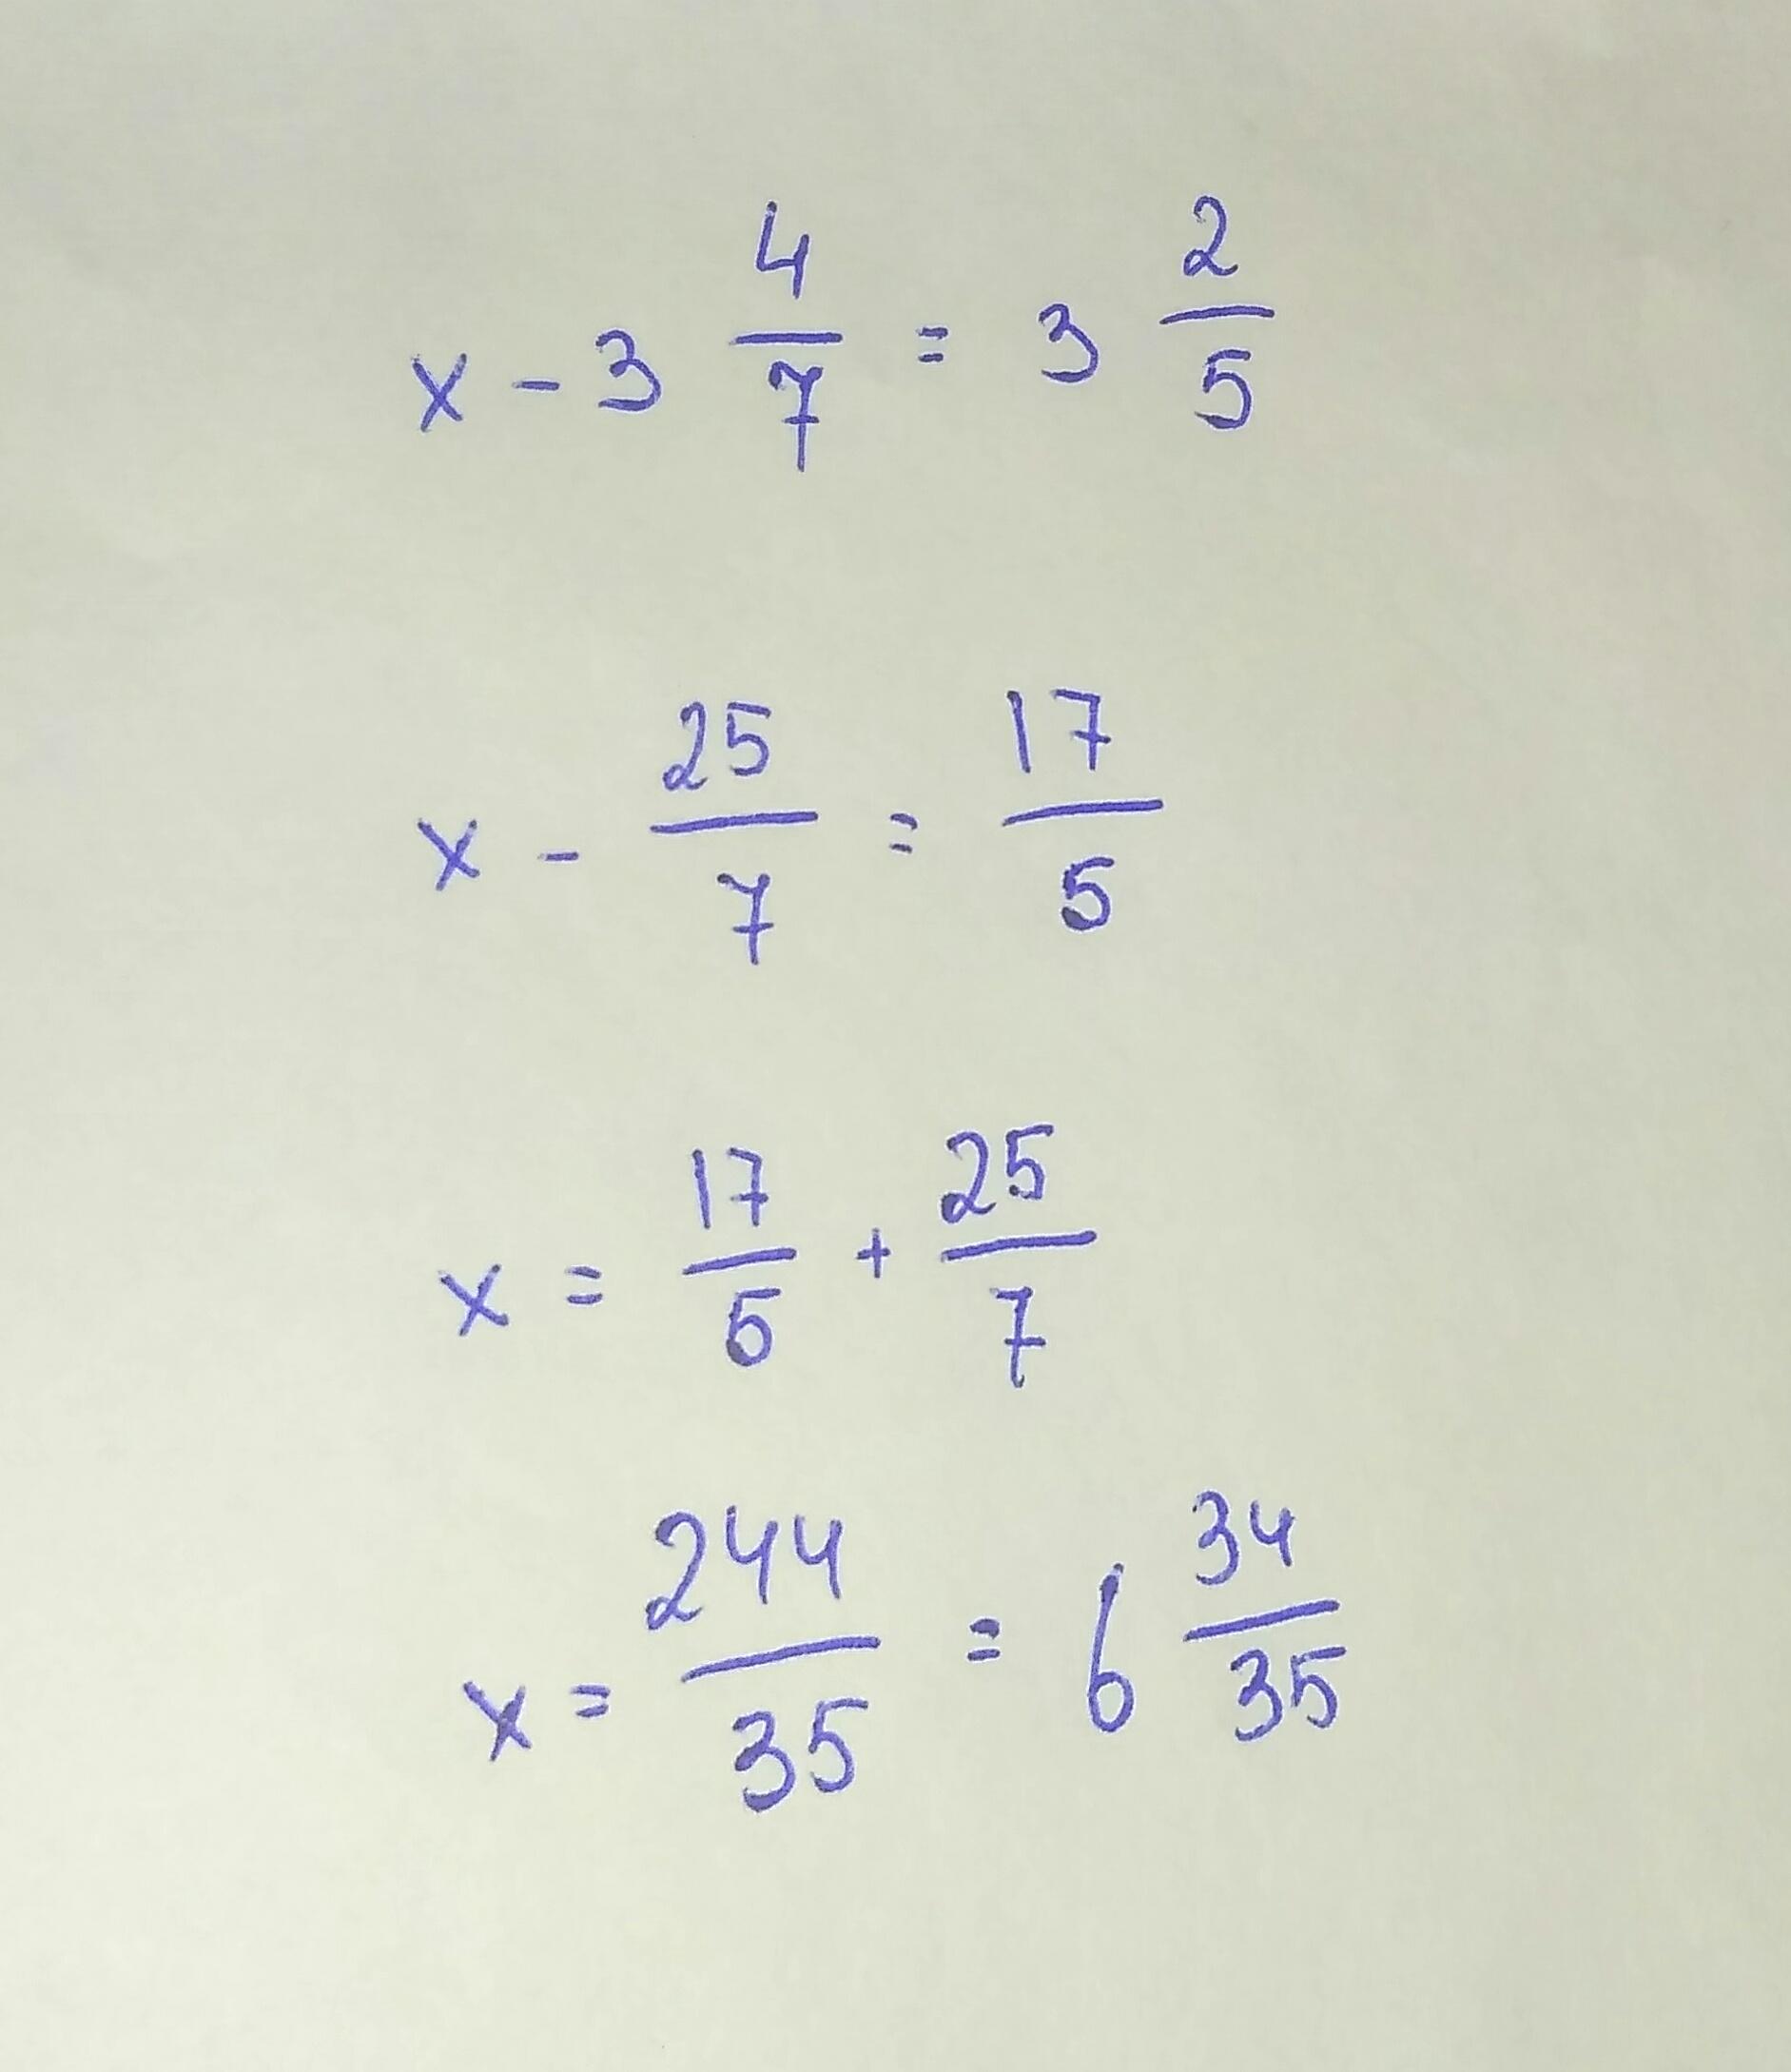 x - 3 4/7 = 3 2/5
x - 25/7 = 17/5
x = 17/5 + 25/7
x = 244/35 = 6 34/35